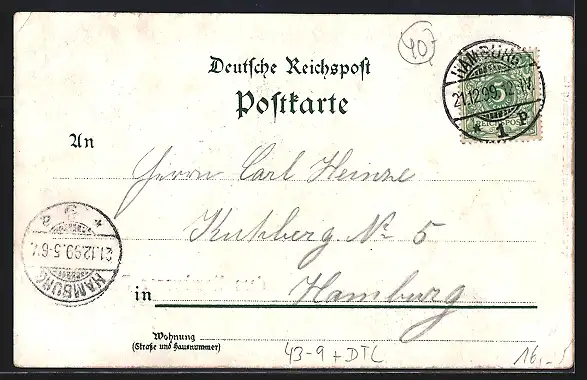 40
Deutsche Reichspost
Postkarte
HAMBURG
21.12.99.
* 1 P
REICHSPOST
An
Herrn Carl Heinze
N° 5
HAMBURG
21.12.99.5-6 N.
in Hamburg
Wohnung
(Straße und Hausnummer)
43-9 + DTL
16,-